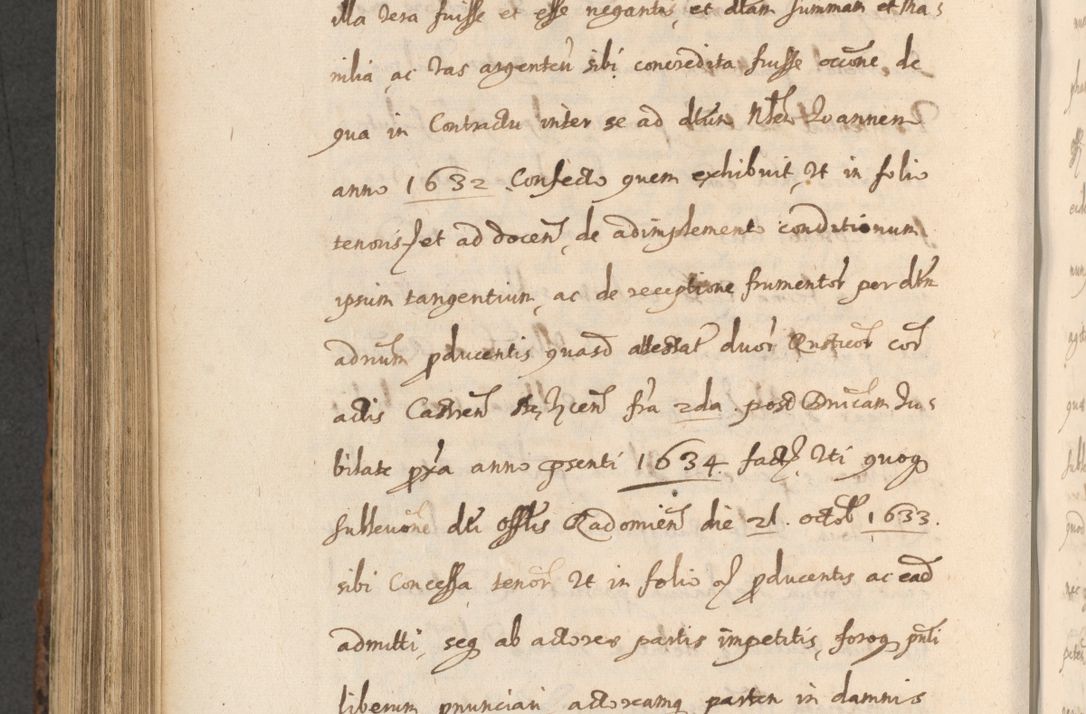 illa vera fuisse et esse negantis, et dtam summam et ha-
nilia, ac vas argenteũ sibi concredita fuisse occōne, de
qua in Contractu inter se ad dtum Joannem
anno 1632 Confecto quem exhibuit, ut in folio
tenoris, et ad docen, de adimplemento conditionum
ipsum tangentium, ac de receptione frumentor per dtm
producentis quasd attestat duor Rusticor cor
actis Castren fra 2da post Dnicam Ju-
bilate pxa anno psenti 1634 fact. Uti quoq
sublevōne dti Offlis Radomien die 21. octob 1633.
sibi Concessa, tenor ut in folio producentis ac ead
admitti, seq ab actorea partis impetitis, foroq pnti
liberum pnunciari actoreamq partem in damnis